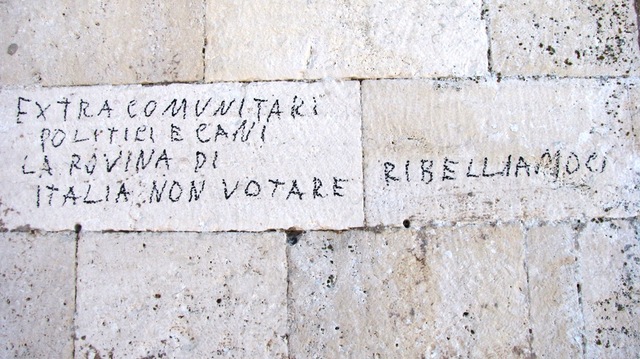 EXTRACOMUNITARI
POLITICI E CANI
LA ROVINA DI
ITALIA NON VOTARE
RIBELLIAMOCI